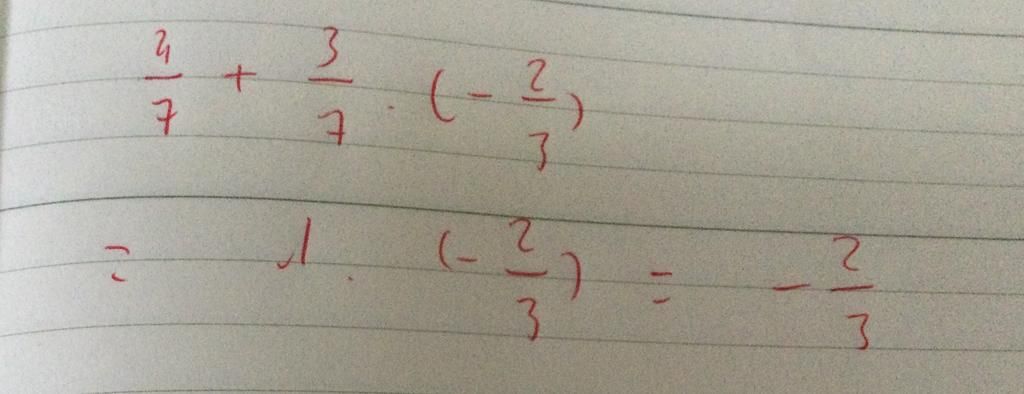 4/7 + 3/7 . (- 2/3)
= 1. (- 2/3) = - 2/3